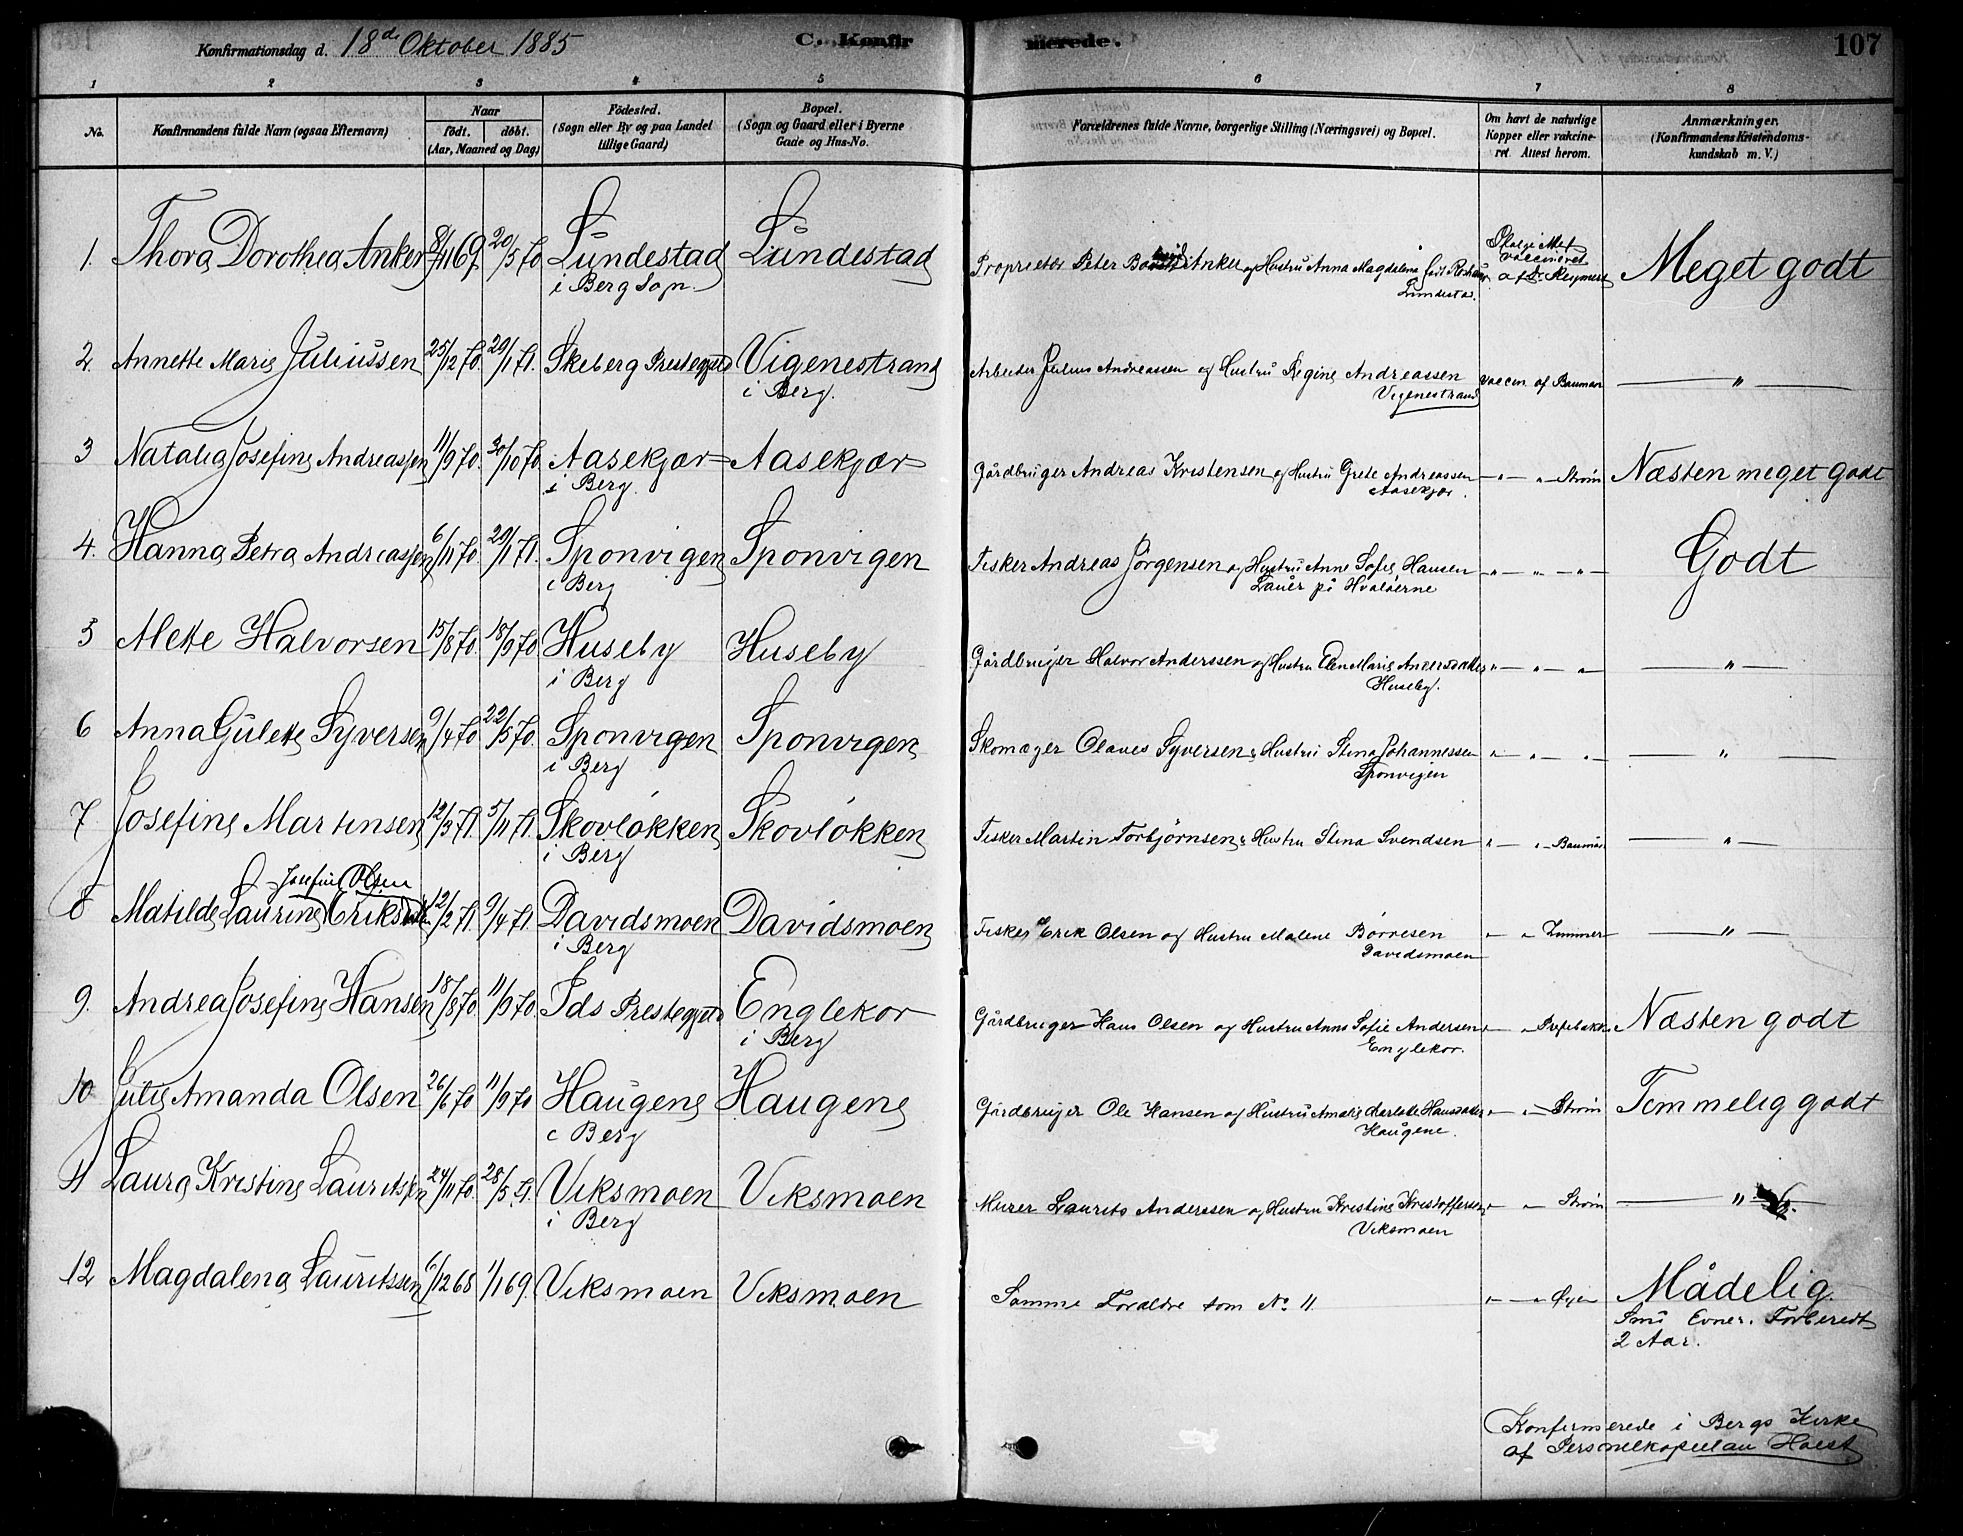 Konfirmationsdag d. 18de Oktober 1885 C. Konfirmerede. 107
1 2 3 4 5 6 7 8
No. Konfirmandens fulde Navn (ogsaa Efternavn) Naar födt. döbt. (Aar, Maaned og Dag) Födested. (Sogn eller By og paa Landet tillige Gaard) Bopæl. (Sogn og Gaard eller i Byerne Gade og Hus-No. Forældrenes fulde Navne, borgerlige Stilling (Næringsvei) og Bopæl. Om havt de naturlige Kopper eller vakcineret. Attest herom. Anmærkninger. (Konfirmandens Kristendomskundskab m. V.)
1. Thora Dorothea Anker 8/11 69 20/5 70 Lundestad Lundestad Proprietær Peter Anker og Hustru Anna Magdalena Meget godt
i Berg Sogn Lundestad vaccineret af Dr.
2 Annette Marie Juliussen 25/12 70. 29/1 71. Skeberg Prestegjeld Vigenestrand Arbeider Julius Andreassen og Hustru Regine Andreassen vaccin af Bauman — " —
i Berg. Vigenestrand
3 Natalia Josefine Andreassen 11/9 70. 30/10 70 Aasekjær Aasekjær Gårdbruger Andreas Kristensen og Hustru Grete Andreassen — " — " — Strøm Næsten meget godt
i Berg. Aasekjær.
4. Hanna Petra Andreassen 6/11 70. 29/1 71. Sponvigen Sponvigen Fisker Andreas Jørgensen og Hustru Anne Sofie Hansen " — " — " — Godt
i Berg Lauer på Hvaløerne
5 Mette Halvorsen 15/8 70. 18/9 70. Huseby Huseby Gårdbruger Halvor Anderssen og Hustru Elen Marie " — " — " — " —
i Berg Huseby.
6 Anna Gulette Syversen 9/4 70 22/5 70. Sponvigen Sponvigen Skomager Olaves Syversen & Hustru Stina Johannessen " — " — " — — " —
i Berg Sponvigen
7 Josefine Martinsen 12/3 71. 5/11 71. Skovløkken Skovløkken Fisker Martin Torbjørnsen & Hustru Stina Svendsen " — " — Bauman — " —
i Berg
Josefine Olsen
8 Matilde Laurine 12/2 71 9/4 71. Davidsmoen Davidsmoen Fisker Erik Olsen og Hustru Malene Børresen " — " Zimmer — " —
i Berg Davidsmoen
9. Andrea Josefine Hansen 18/8 70. 11/9 70. Ids Prestegjeld Englekor Gårdbruger Hans Olsen og Hustru Anne Sofie Andersen " — " Næsten godt
i Berg Englekor.
10 Julie Amanda Olsen 26/6 70 11/9 70 Haugene Haugene Gårdbruger Ole Hansen og Hustru Amalie " — " — Strøm Temmelig godt
i Berg Haugene.
11 Laura Kristine Lauritssen 24/11 70. 28/5 71. Viksmoen Viksmoen Murer Laurits Anderssen og Hustru Kristine Kristoffersen " — " Strøm — " —
i Berg Viksmoen
12 Magdalena Lauritssen 6/12 68 1/1 69. Viksmoen Viksmoen Samme Forældre som No 11. " — " Mådelig.
Små Evner. Forberedt
2 Aar.
Konfirmerede i Bergs Kirke
af Personelkapellan Holst